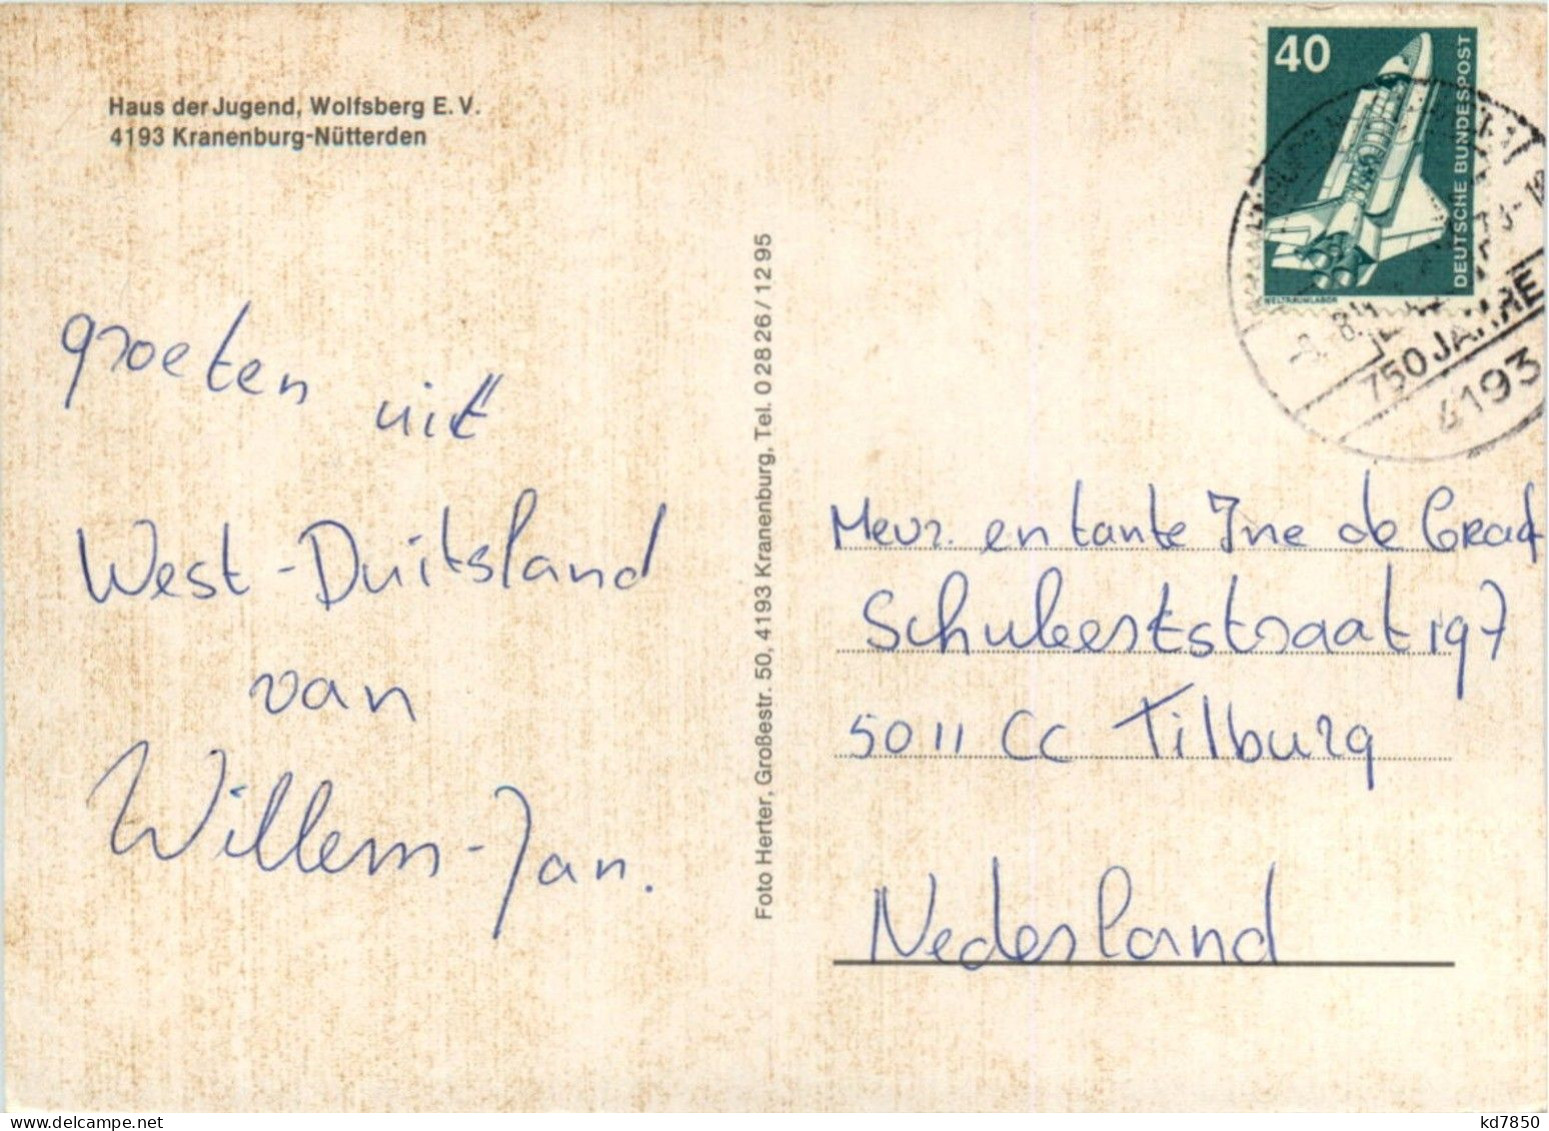 Haus der Jugend, Wolfsberg E. V.
4193 Kranenburg-Nütterden
groeten uit
West-Duitsland
van
Willem-Jan.
Foto Herter, Großestr. 50, 4193 Kranenburg, Tel. 0 28 26 / 12 95
40
DEUTSCHE BUNDESPOST
WELTRAUMLABOR
750 JAHRE
4193
en tante Ine de Graaf
Schubertstraat 197
5011 CC Tilburg
Nederland
kd7850